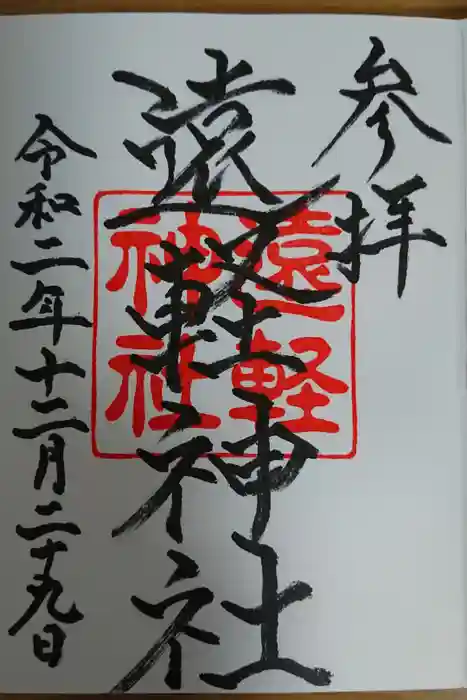 参拝
遠軽神社
遠軽
神社
令和二年十二月二十九日